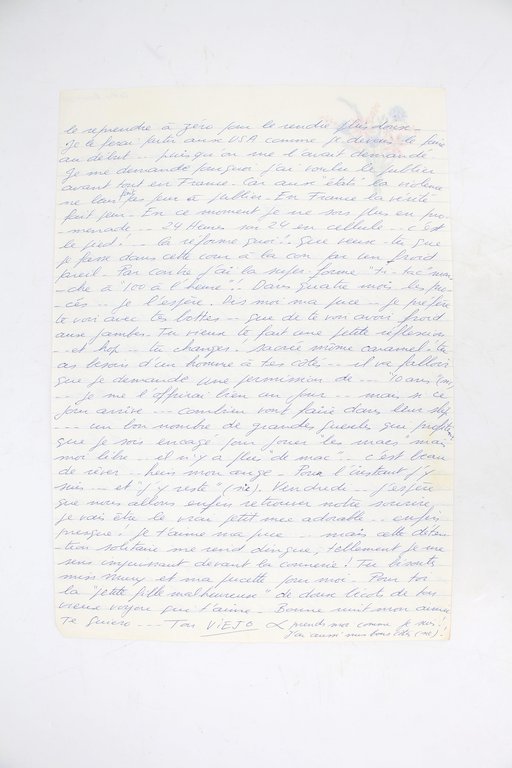 le reprendre à zéro pour le rendre plus doux -
Je le ferai publier aux USA comme je devais le faire
au début -- puisqu'on me l'avait demandé
Je me demande pourquoi j'ai voulu le publier
avant tout en France. Car aux états la violence
ne leur fait pas peur à publier. En France la vérité
fait peur - En ce moment je ne vais plus en pro-
menade -- 24 Heures sur 24 en cellule - c'est
le pied! -- la réforme quoi! Que veux-tu que
je fasse dans cette cour à la con par un froid
pareil - Par contre j'ai la super forme "tic-tac" mar-
che à "100 à l'heure"! Dans quatre mois les pro-
cès -- je l'espère. Dis moi ma puce -- je préfère
te voir avec tes bottes -- que de te voir avoir froid
aux jambes. Tu vieux te fait une petite réflexion
-- et hop -- tu changes! Sacrée môme caramel! tu
as besoin d'un homme à tes côtés -- il va falloir
que je demande une permission de -- "10 ans" (sic)
-- Je me l'offrirai bien un jour -- mais si ce
jour arrive -- combien vont faire dans leur slip
--- un bon nombre de grandes gueules qui profitent
que je sois encagé pour jouer "les macs" mais
moi libre -- et n'y a plus "de mac" -- c'est beau
de rêver -- hein mon ange - Pour l'instant j'y
suis -- et "j'y reste" (sic). Vendredi - j'espère
que nous allons enfin retrouver notre sourire,
je vais être le vrai petit mec adorable -- enfin
presque! Je t'aime ma puce --- mais cette déten-
tion solitaire me rend dingue, tellement je me
sens impuissant devant la connerie! Tu bisouilles
miss Muny et ma pucette pour moi - Pour toi
la "petite fille malheureuse" de doux bécots de ton
vieux voyou qui t'aime - Bonne nuit mon amour
Te quiero --- Ton VIEJO prends moi comme je suis!
j'ai aussi mes bons côtés (sic)!